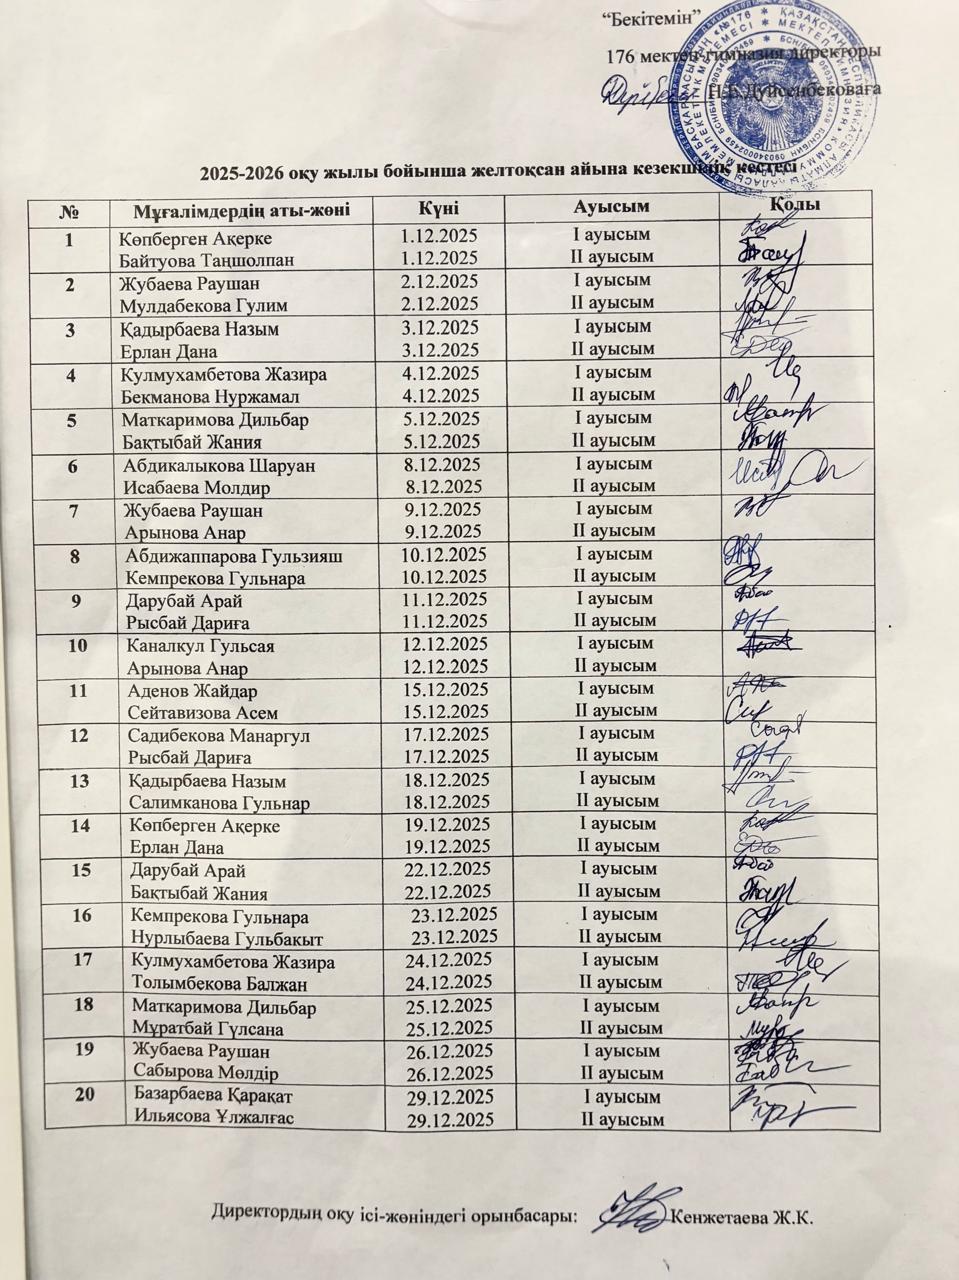 “Бекітемін”
176 мектеп-гимназия директоры
Н.Б.Дүйсенбековаға
2025-2026 оқу жылы бойынша желтоқсан айына кезекшілік кестесі
№ Мұғалімдердің аты-жөні Күні Ауысым Қолы
1 Көпберген Ақерке 1.12.2025 I ауысым
Байтуова Таңшолпан 1.12.2025 II ауысым
2 Жубаева Раушан 2.12.2025 I ауысым
Мулдабекова Гулим 2.12.2025 II ауысым
3 Қадырбаева Назым 3.12.2025 I ауысым
Ерлан Дана 3.12.2025 II ауысым
4 Кулмухамбетова Жазира 4.12.2025 I ауысым
Бекманова Нуржамал 4.12.2025 II ауысым
5 Маткаримова Дильбар 5.12.2025 I ауысым
Бақтыбай Жания 5.12.2025 II ауысым
6 Абдикалыкова Шаруан 8.12.2025 I ауысым
Исабаева Молдир 8.12.2025 II ауысым
7 Жубаева Раушан 9.12.2025 I ауысым
Арынова Анар 9.12.2025 II ауысым
8 Абдижаппарова Гульзияш 10.12.2025 I ауысым
Кемпрекова Гульнара 10.12.2025 II ауысым
9 Дарубай Арай 11.12.2025 I ауысым
Рысбай Дариға 11.12.2025 II ауысым
10 Каналкул Гульсая 12.12.2025 I ауысым
Арынова Анар 12.12.2025 II ауысым
11 Аденов Жайдар 15.12.2025 I ауысым
Сейтавизова Асем 15.12.2025 II ауысым
12 Садибекова Манаргул 17.12.2025 I ауысым
Рысбай Дариға 17.12.2025 II ауысым
13 Қадырбаева Назым 18.12.2025 I ауысым
Салимканова Гульнар 18.12.2025 II ауысым
14 Көпберген Ақерке 19.12.2025 I ауысым
Ерлан Дана 19.12.2025 II ауысым
15 Дарубай Арай 22.12.2025 I ауысым
Бақтыбай Жания 22.12.2025 II ауысым
16 Кемпрекова Гульнара 23.12.2025 I ауысым
Нурлыбаева Гульбакыт 23.12.2025 II ауысым
17 Кулмухамбетова Жазира 24.12.2025 I ауысым
Толымбекова Балжан 24.12.2025 II ауысым
18 Маткаримова Дильбар 25.12.2025 I ауысым
Мұратбай Гүлсана 25.12.2025 II ауысым
19 Жубаева Раушан 26.12.2025 I ауысым
Сабырова Мөлдір 26.12.2025 II ауысым
20 Базарбаева Қарақат 29.12.2025 I ауысым
Ильясова Ұлжалғас 29.12.2025 II ауысым
Директордың оқу ісі-жөніндегі орынбасары: Кенжетаева Ж.К.